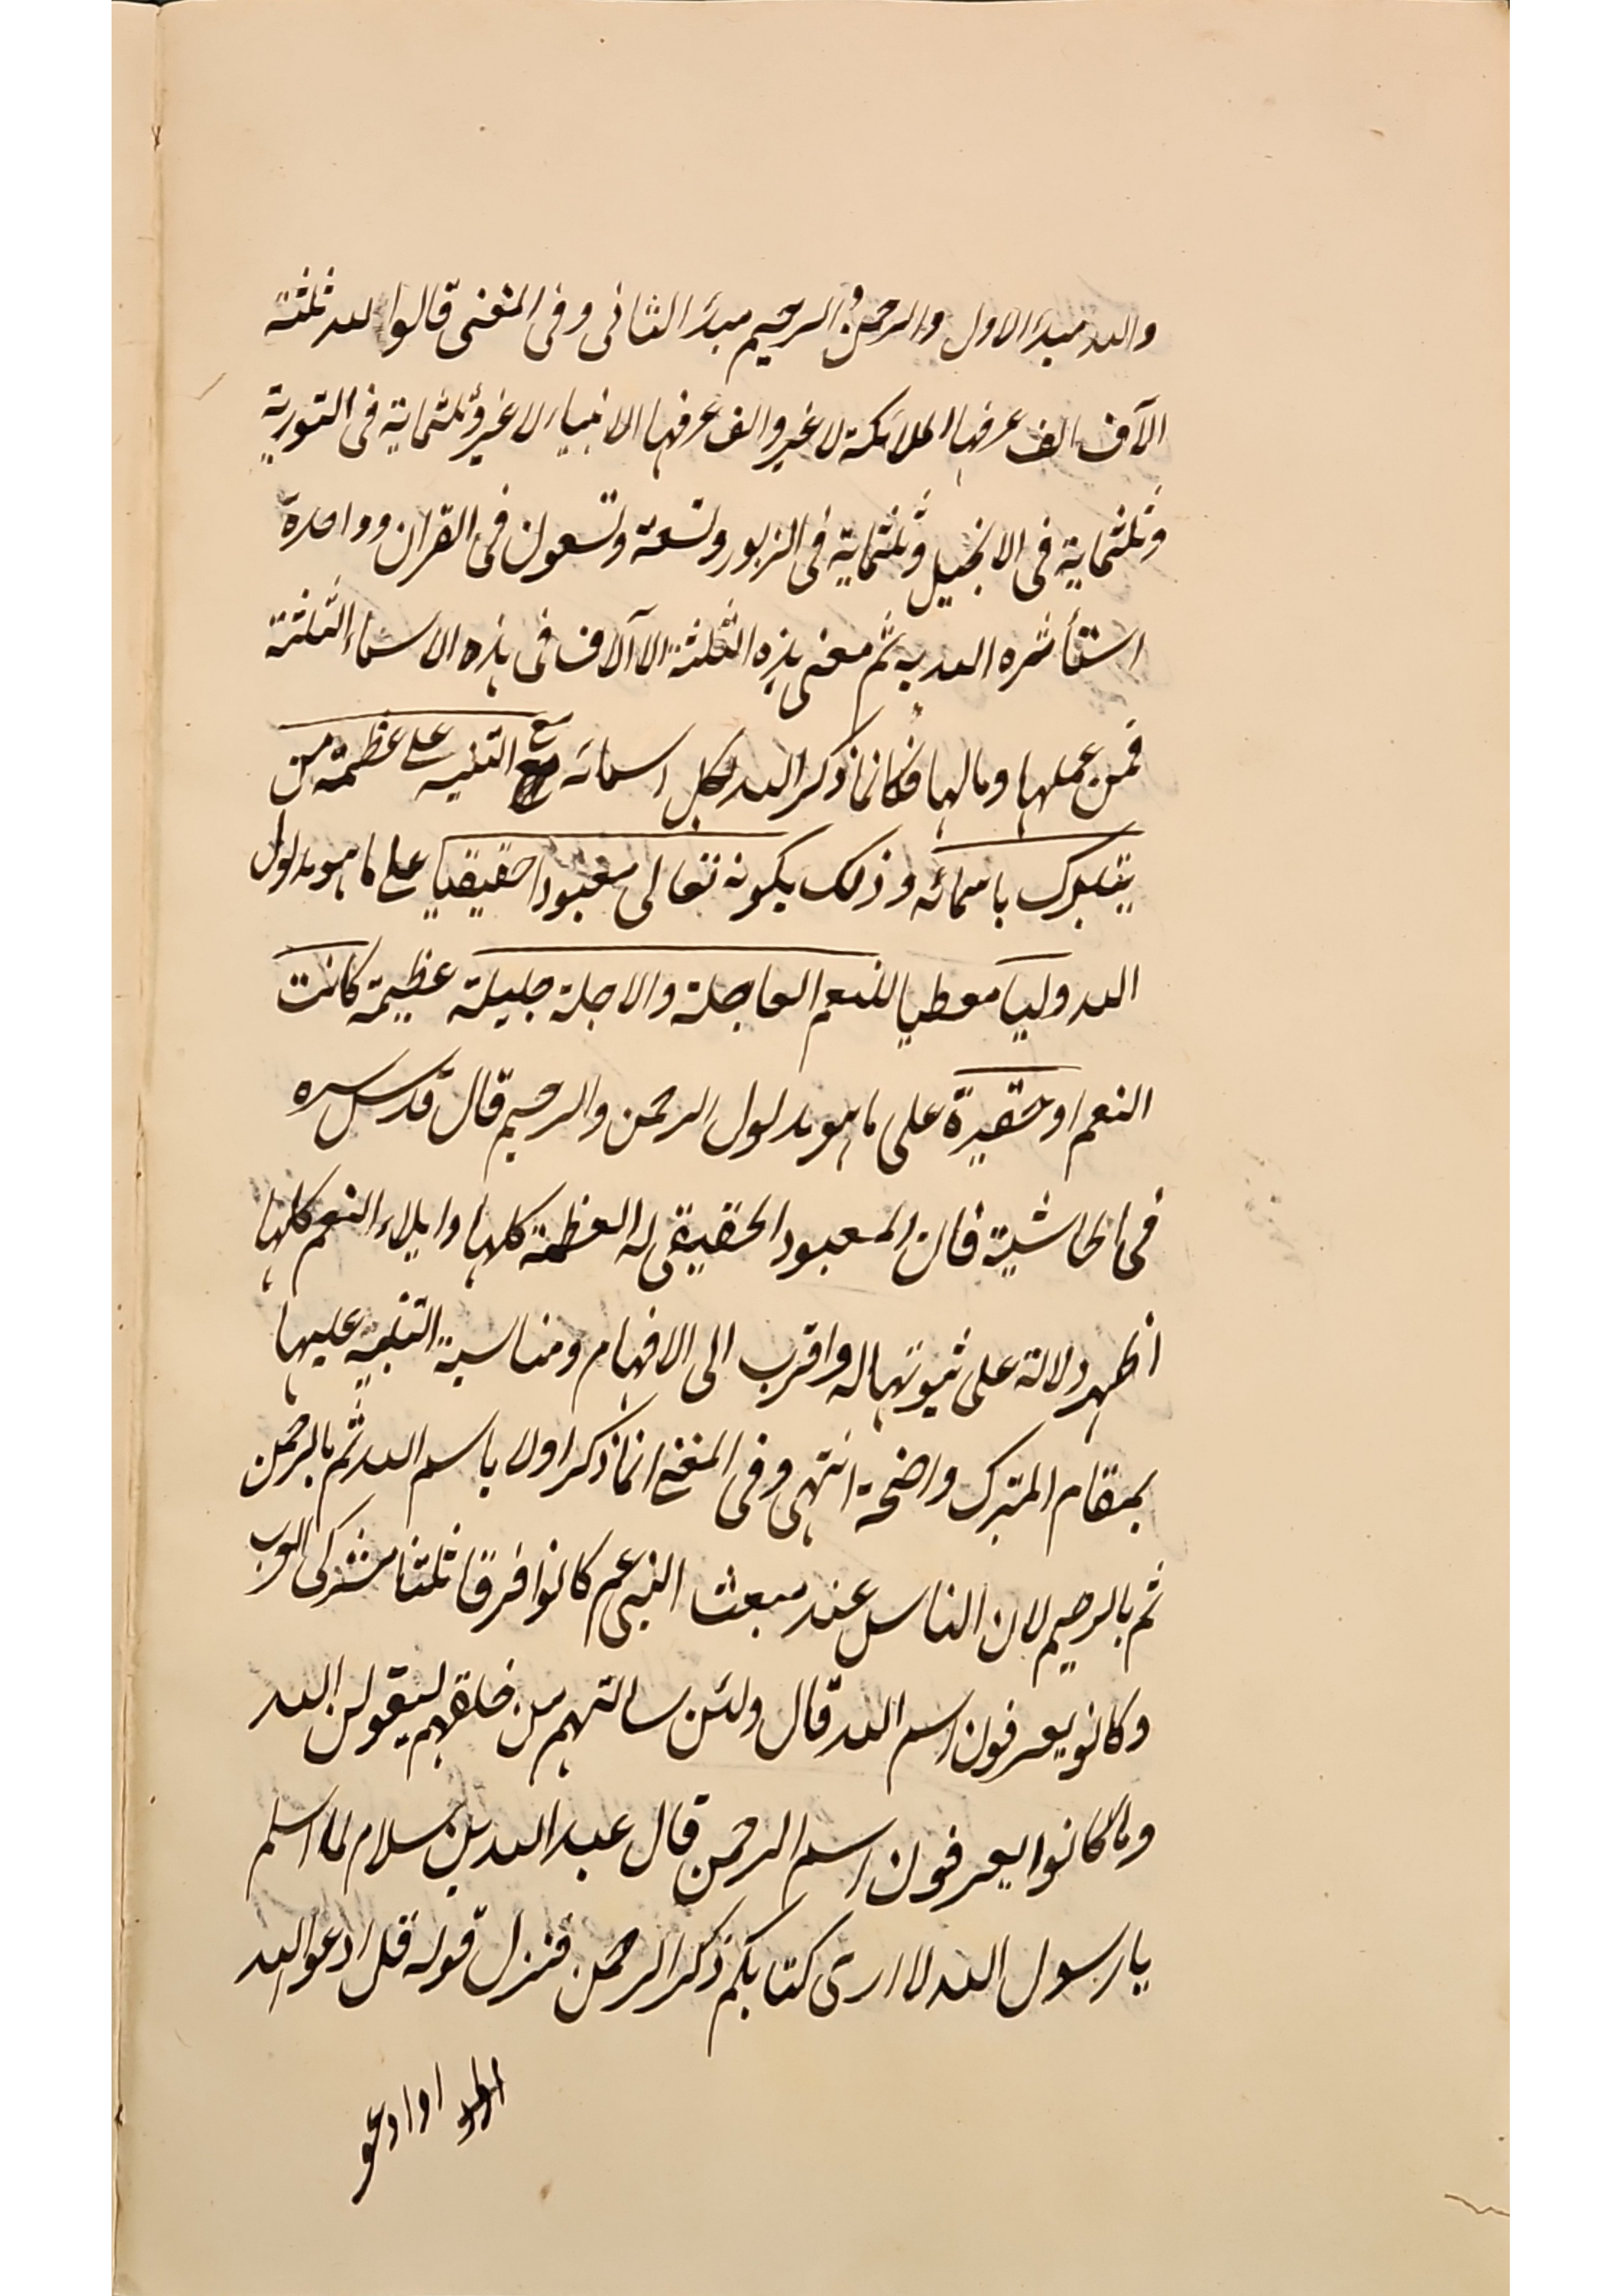 والله مبدء الاول والرحمن و الرحيم مبدء الثانى وفى المغنى قالوا لله ثلثة
الآف الف عرفها الملائكة لا غير والف عرفها الانبياء لا غير وثلثماية فى التورية
وثلثماية فى الانجيل وثلثماية فى الزبور وتسعة وتسعون فى القران وواحدة
استأثره الله به ثم معنى هذه الثلثة الاآلاف فى هذه الاسماء الثلثة
فمن عملها ومالها فكانما ذكر الله بكل اسمائه مع التنبيه على عظمة من
يتبرك باسمائه وذلك بكونه تعالى معبودا حقيقيا على ما هو مدلول
الله وليا معطيا للنعم العاجلة والاجلة جليلة عظيمة كانت
النعم او حقيرة على ما هو مدلول الرحمن والرحيم قال قدس سره
فى الحاشية فان المعبود الحقيقى له العظمة كلها وايلاء النعم كلها
اظهر دلالة على ثبوتها له واقرب الى الافهام ومناسبة التنبيه عليها
بمقام المتبرك واضحة انتهى وفى المغنى انما ذكر اولا باسم الله ثم بالرحمن
ثم بالرحيم لان الناس عند مبعث النبى عم كانوا فرقا ثلثا مشركى العرب
وكانو يعرفون اسم الله قال ولئن سالتهم من خلقهم ليقولن الله
وما كانوا يعرفون اسم الرحمن قال عبد الله بن سلام لما اسلم
يا رسول الله لا ارى كتابكم ذكر الرحمن فنزل قوله قل ادعوا الله
او ادعو